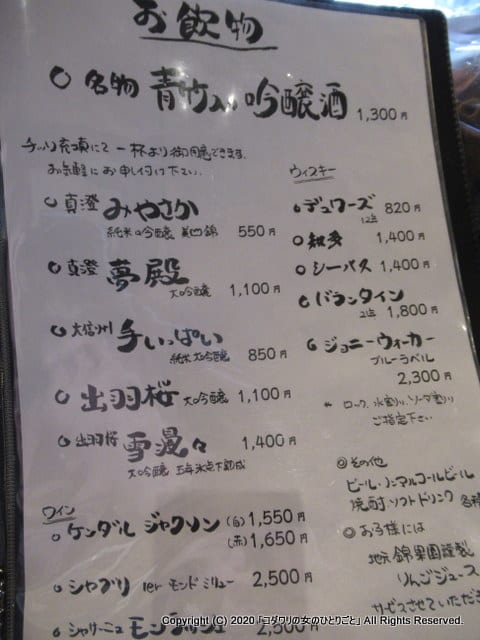 お飲物
○ 名物 青竹入り吟醸酒 1,300円
一杯より御用意できます。
お気軽にお申し付け下さい。
○ 真澄 みやさか 純米吟醸 美山錦 550円
○ 真澄 夢殿 大吟醸 1,100円
○ 大信州 手いっぱい 純米大吟醸 850円
○ 出羽桜 大吟醸 1,100円
○ 出羽桜 雪漫々 1,400円
大吟醸 五年氷点下熟成
ワイン
○ ケンダル ジャクソン (白) 1,550円
(赤) 1,650円
○ シャブリ 1er モンド ミリュー 2,500円
モンラッシェ 2,500円
ウィスキー
○ デュワーズ 12年 820円
○ 知多 1,400円
○ シーバス 1,400円
○ バランタイン 1,800円
○ ジョニーウォーカー
ブルーラベル
2,300円
ロック、水割り、ソーダ割り
ご指定下さい
◎ その他
ビール・ノンアルコールビール
焼酎・ソフトドリンク 各種
◎ お子様には
地元 錦果園謹製
りんごジュース
サービスさせていただき
Copyright (C) 2020「コダワリの女のひとりごと」 All Rights Reserved.